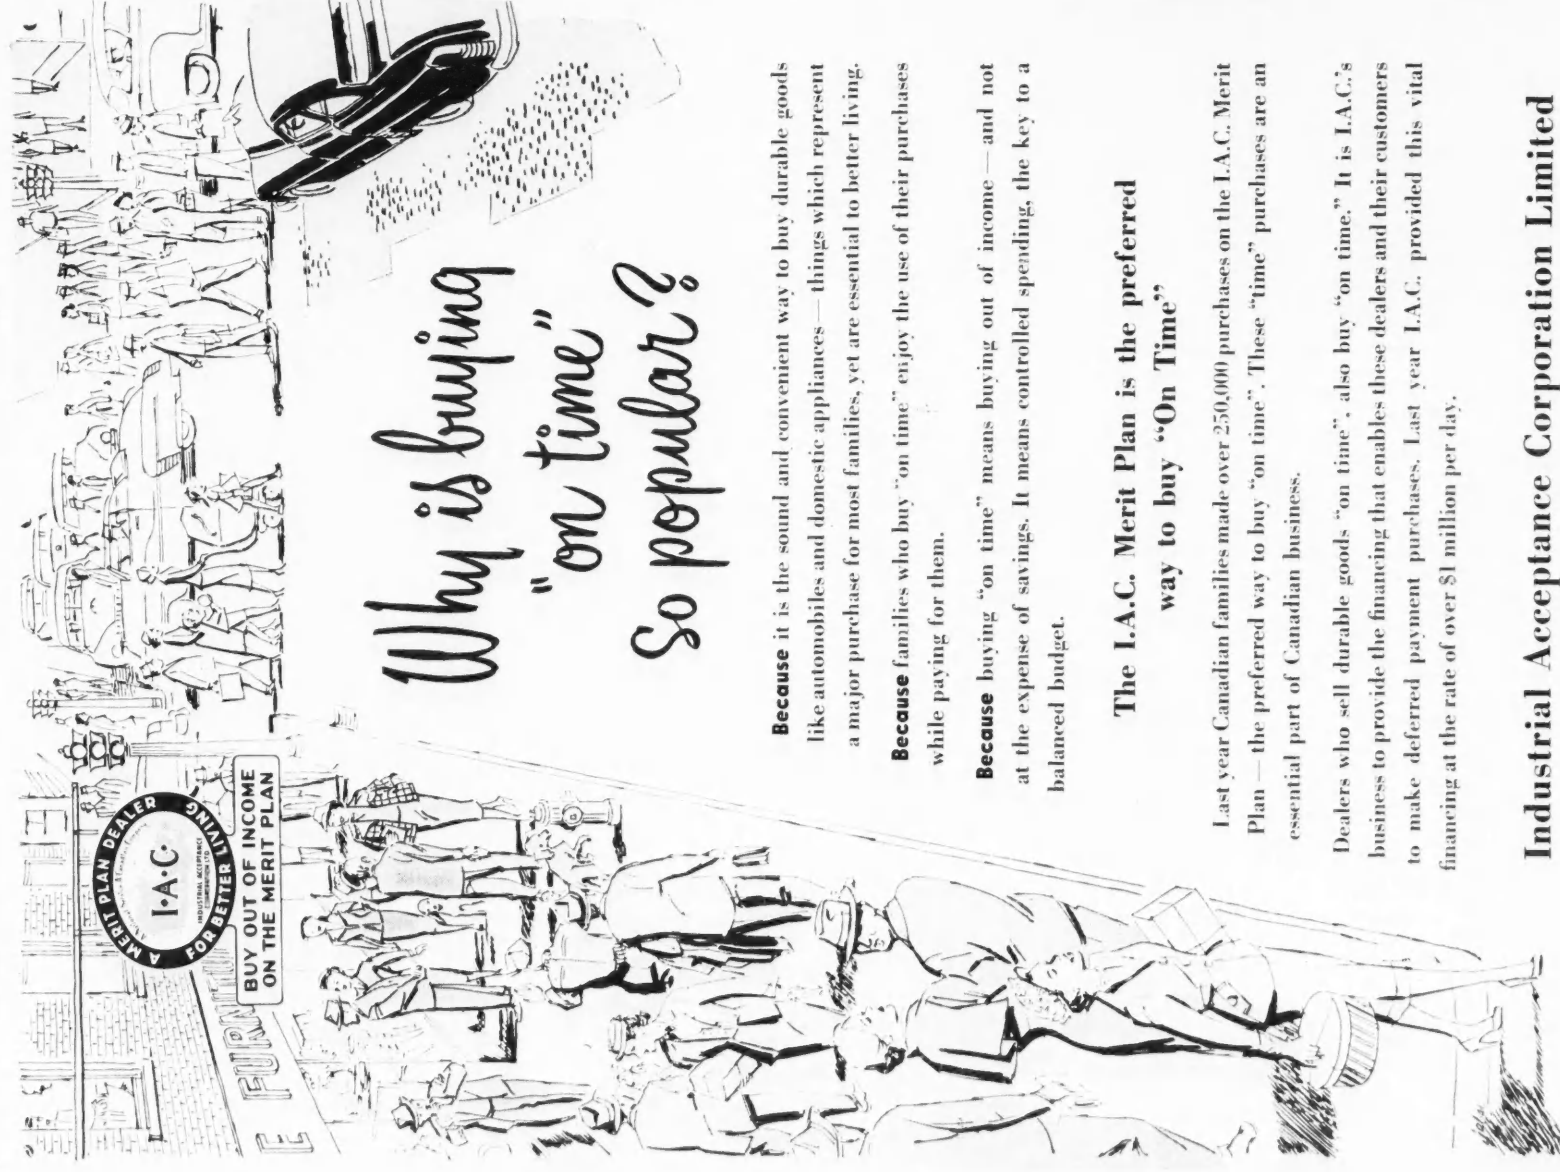 A MERIT PLAN DEALER
I·A·C·
INDUSTRIAL ACCEPTANCE
CORPORATION LTD.
FOR BETTER LIVING
BUY OUT OF INCOME
ON THE MERIT PLAN
E FURNI
Why is buying
"on time"
So popular?
Because it is the sound and convenient way to buy durable goods
like automobiles and domestic appliances — things which represent
a major purchase for most families, yet are essential to better living.
Because families who buy "on time" enjoy the use of their purchases
while paying for them.
Because buying "on time" means buying out of income — and not
at the expense of savings. It means controlled spending, the key to a
balanced budget.
The I.A.C. Merit Plan is the preferred
way to buy "On Time"
Last year Canadian families made over 250,000 purchases on the I.A.C. Merit
Plan — the preferred way to buy "on time". These "time" purchases are an
essential part of Canadian business.
Dealers who sell durable goods "on time", also buy "on time." It is I.A.C.'s
business to provide the financing that enables these dealers and their customers
to make deferred payment purchases. Last year I.A.C. provided this vital
financing at the rate of over $1 million per day.
Industrial Acceptance Corporation Limited